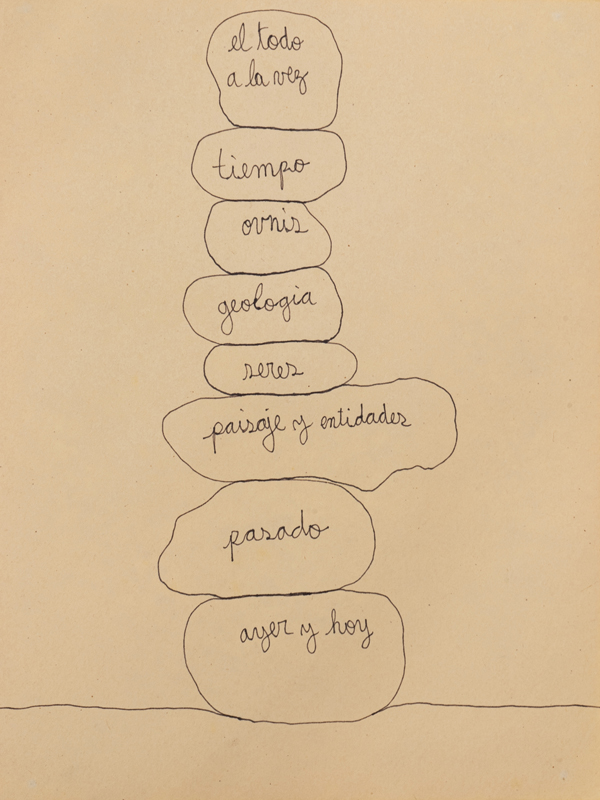 el todo
a la vez
tiempo
ovnis
geologia
seres
paisaje y entidades
pasado
ayer y hoy